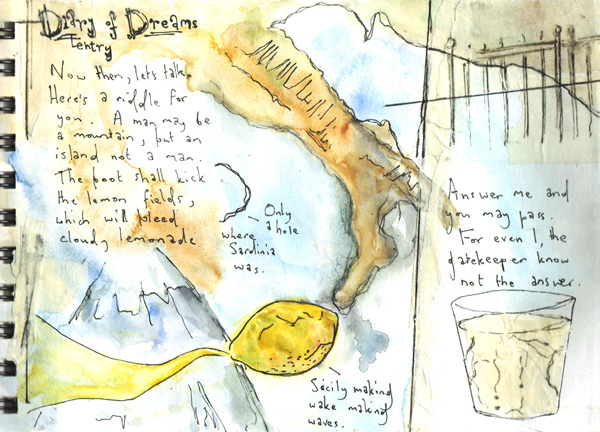 Diary of Dreams
1entry
Now then, let's talk.
Here's a riddle for
you. A man may be
a mountain, but an
island not a man.
The boot shall kick
the lemon fields,
which will bleed
cloudy lemonade
Only
a hole
where
Sardinia
was.
Sicily making
wake making
waves.
Answer me and
you may pass.
For even I, the
gatekeeper know
not the answer.